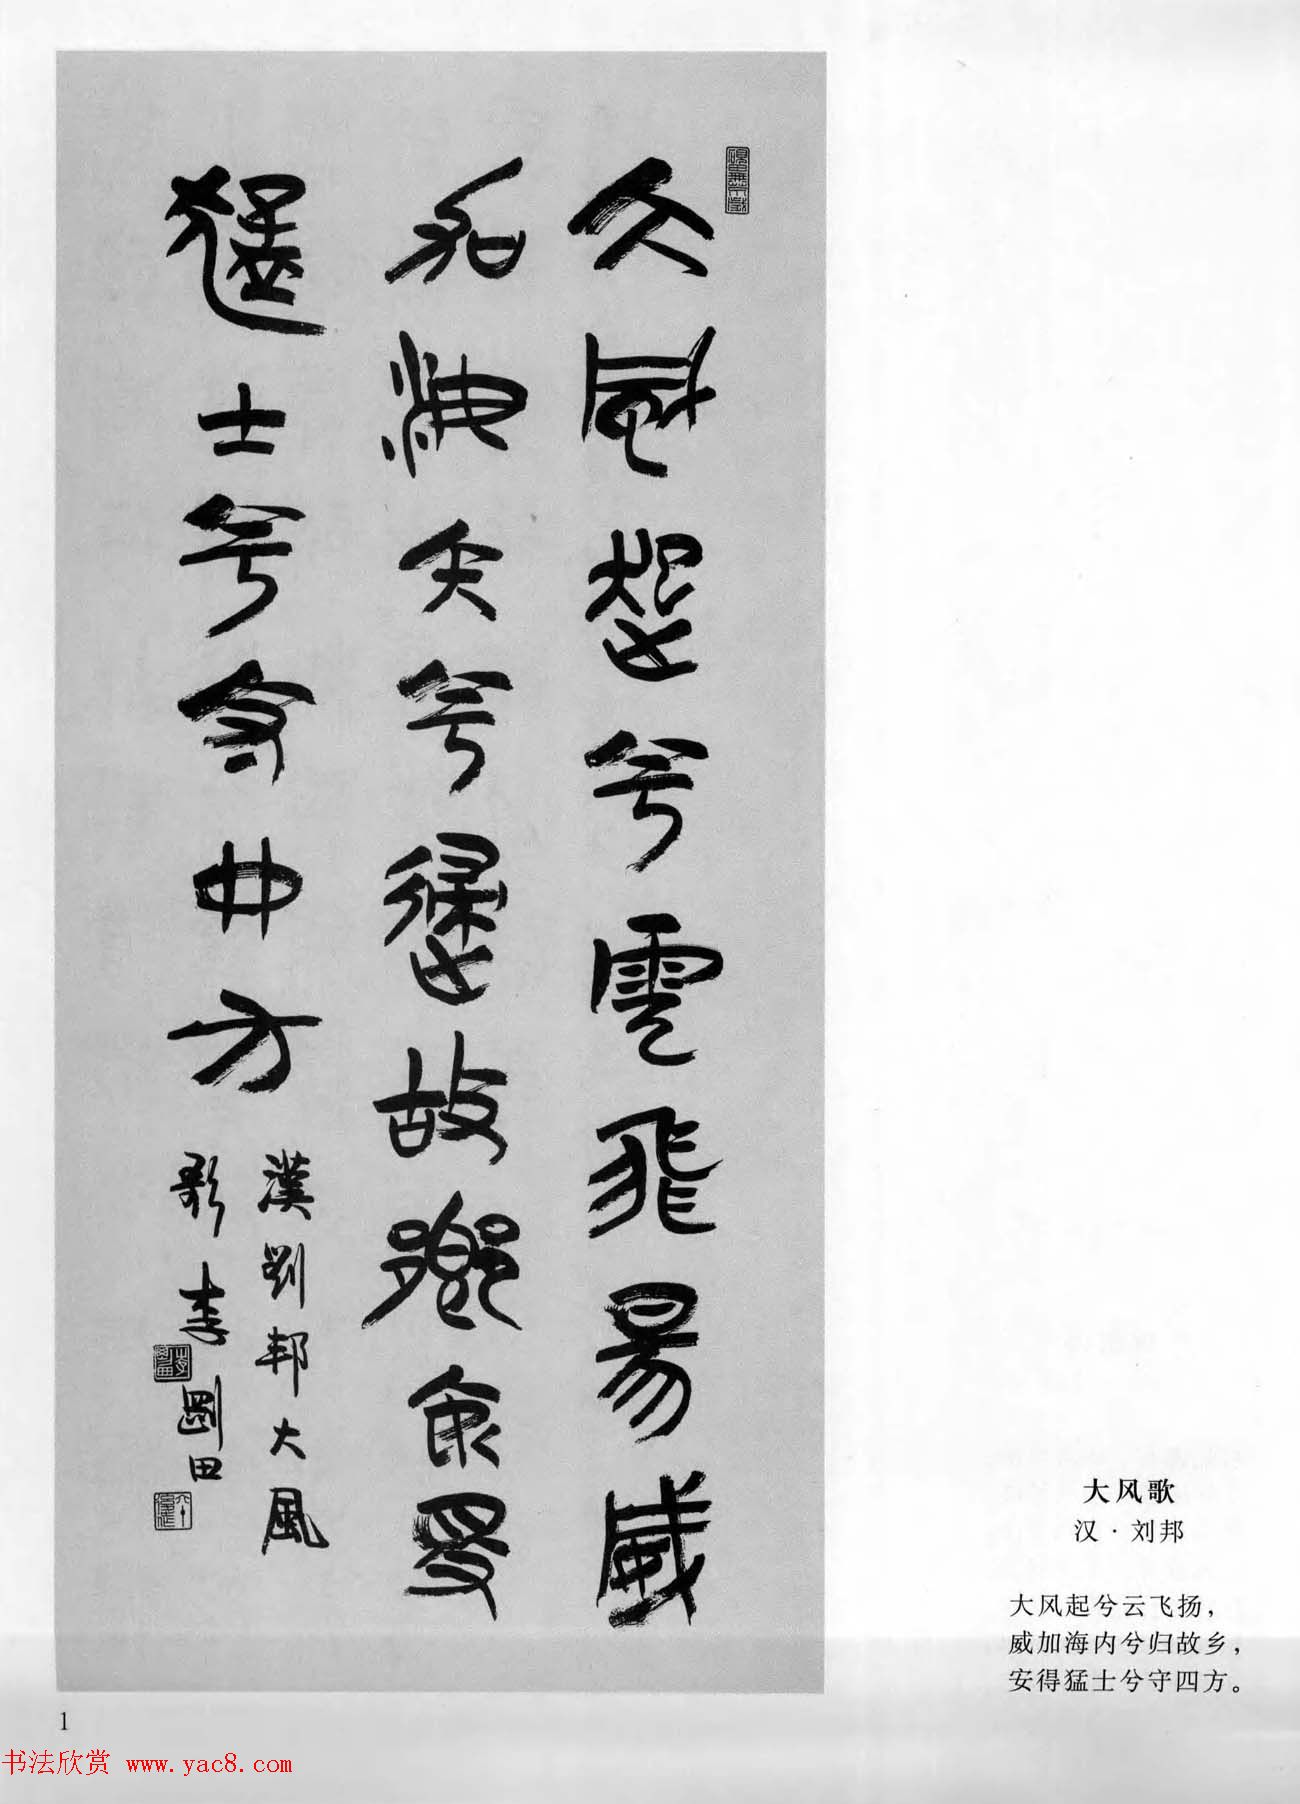 大風起兮雲飛昜威
加海內兮歸故鄉安得
猛士兮守四方
漢劉邦大風
歌李剛田
大风歌
汉·刘邦
大风起兮云飞扬，
威加海内兮归故乡，
安得猛士兮守四方。
1
书法欣赏 www.yac8.com